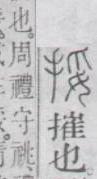 挼摧也
也。周禮守祧